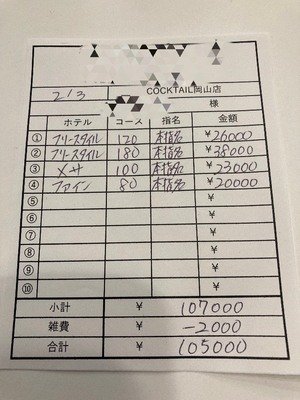 2/3
COCKTAIL岡山店
様
ホテル コース 指名 金額
① フリースタイル 120 本指名 ¥26000
② フリースタイル 180 本指名 ¥38000
③ メサ 100 本指名 ¥23000
④ ファイン 80 本指名 ¥20000
⑤ ¥
⑥ ¥
⑦ ¥
⑧ ¥
⑨ ¥
⑩ ¥
小計 ¥ 107000
雑費 ¥ -2000
合計 ¥ 105000